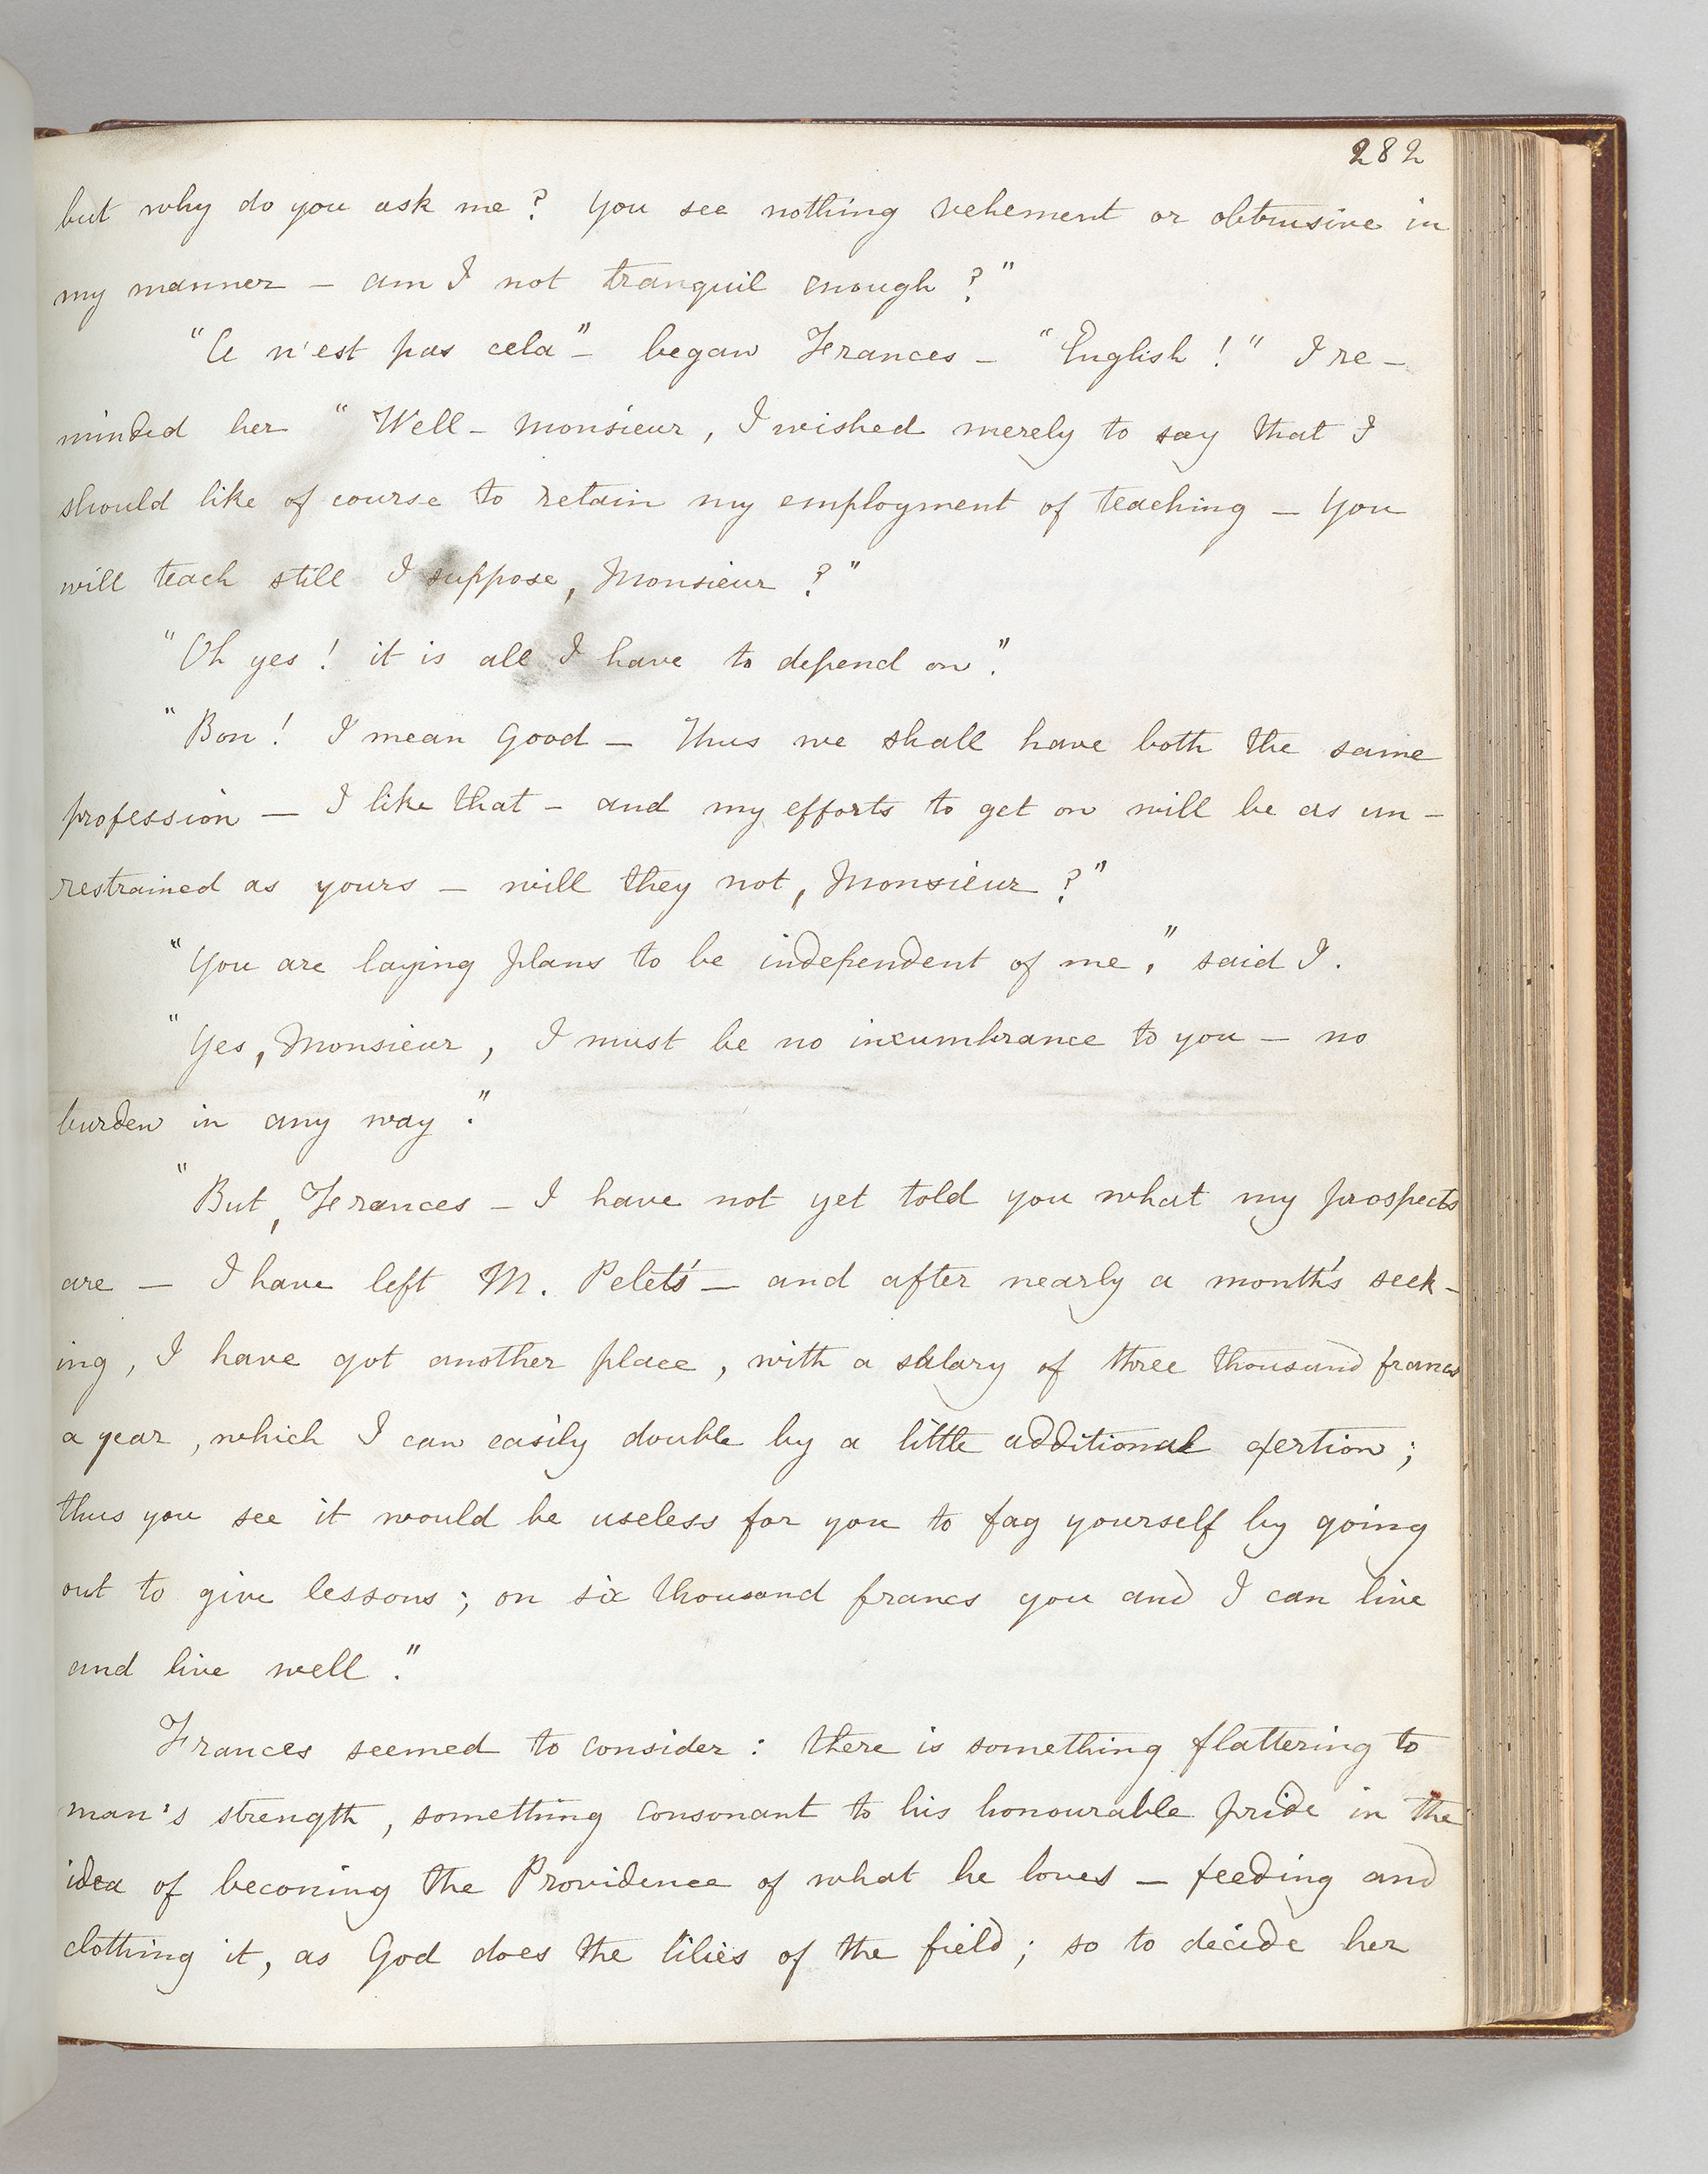 282
but why do you ask me? You see nothing vehement or obtrusive in
my manner – am I not tranquil enough?"
"Ce n'est pas cela" – began Frances – "English!" I re-
minded her "Well – Monsieur, I wished merely to say that I
should like of course to retain my employment of teaching – You
will teach still I suppose, Monsieur?"
"Oh yes! it is all I have to depend on."
"Bon! I mean Good – Thus we shall have both the same
profession – I like that – and my efforts to get on will be as un-
restrained as yours – will they not, Monsieur?"
"You are laying plans to be independent of me," said I.
"Yes, Monsieur, I must be no incumbrance to you – no
burden in any way."
"But, Frances – I have not yet told you what my prospects
are – I have left M. Pelet's – and after nearly a month's seek-
ing, I have got another place, with a salary of three thousand francs
a year, which I can easily double by a little additional exertion;
thus you see it would be useless for you to fag yourself by going
out to give lessons; on six thousand francs you and I can live
and live well."
Frances seemed to consider: there is something flattering to
man's strength, something consonant to his honourable pride in the
idea of becoming the Providence of what he loves – feeding and
clothing it, as God does the lilies of the field; so to decide her